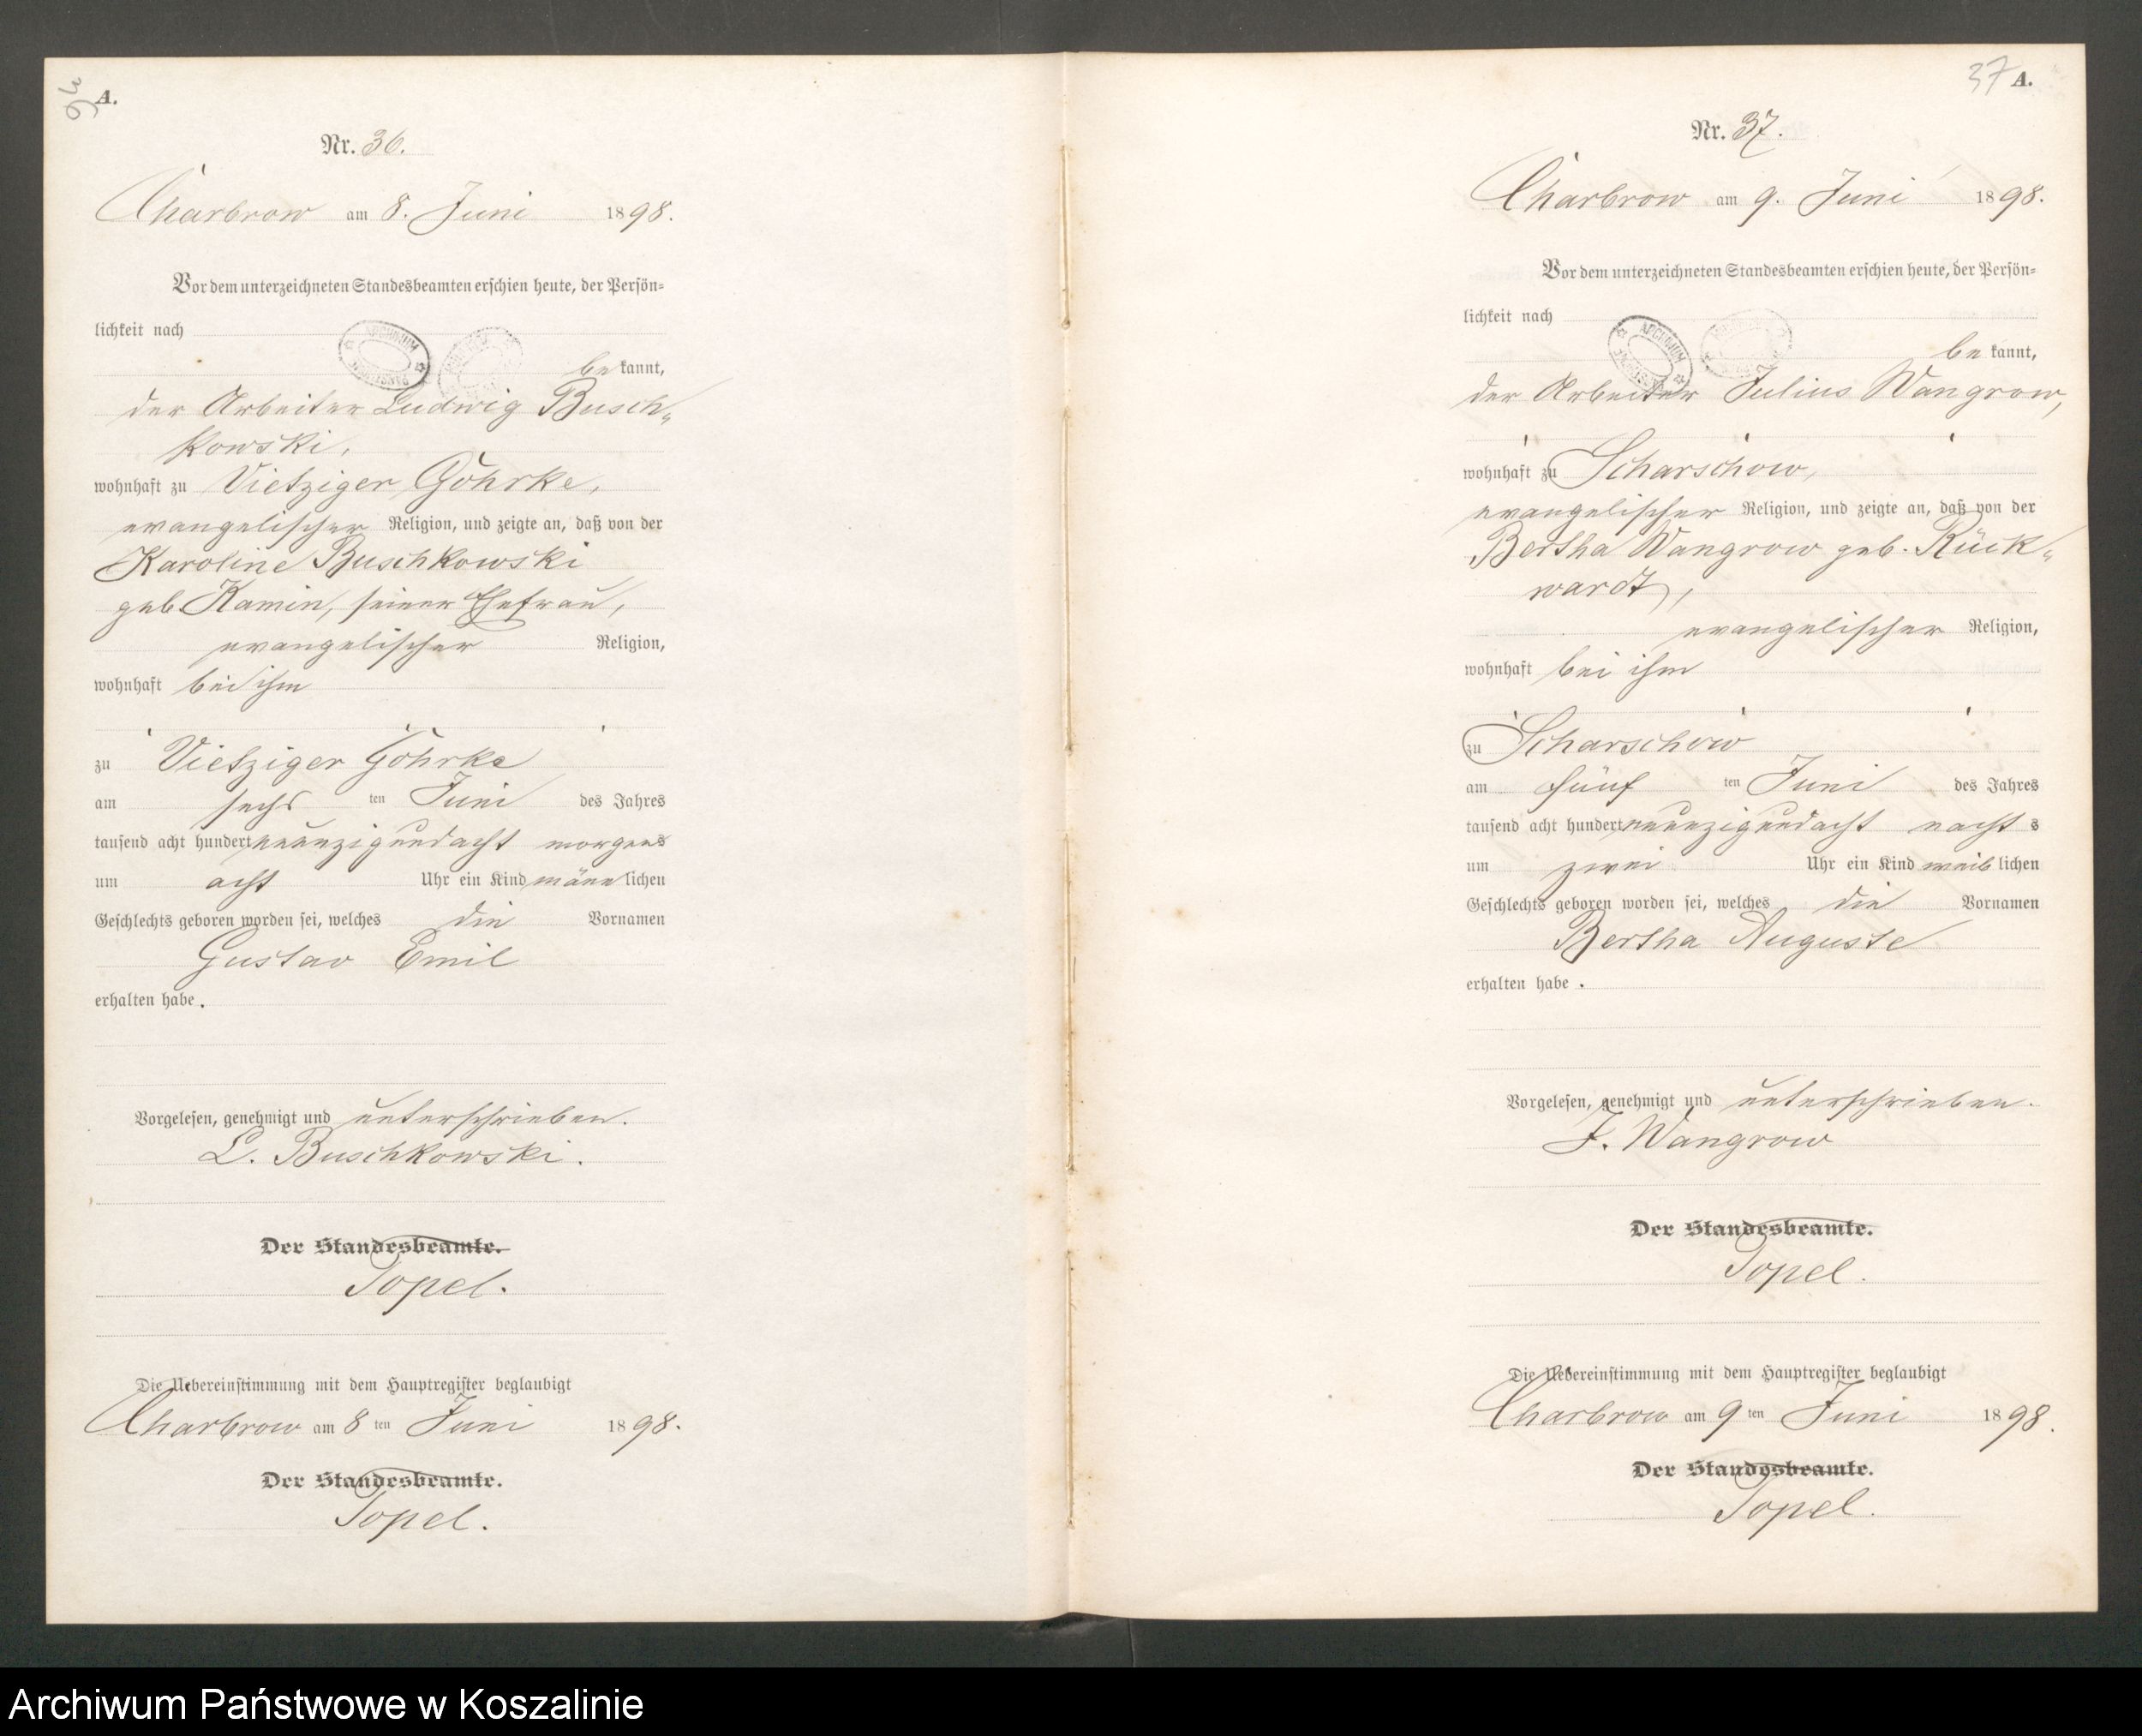 A.
Nr. 36.
Charbrow am 8. Juni 1898.
Vor dem unterzeichneten Standesbeamten erschien heute, der Persön-
lichkeit nach
be kannt,
der Arbeiter Ludwig Busch-
kowski,
wohnhaft zu Vietziger Göhrke,
evangelischer Religion, und zeigte an, daß von der
Karoline Buschkowski
geb. Kamin, seiner Ehefrau,
evangelischer Religion,
wohnhaft bei ihm
zu Vietziger Göhrke
am sechs ten Juni des Jahres
tausend acht hundert neunzig und acht morgens
um acht Uhr ein Kind männlichen
Geschlechts geboren worden sei, welches die Vornamen
Gustav Emil
erhalten habe.
Vorgelesen, genehmigt und unterschrieben.
L. Buschkowski.
Der Standesbeamte.
Topel.
Die Uebereinstimmung mit dem Hauptregister beglaubigt
Charbrow am 8 ten Juni 1898.
Der Standesbeamte.
Topel.
37 A.
Nr. 37.
Charbrow am 9. Juni 1898.
Vor dem unterzeichneten Standesbeamten erschien heute, der Persön-
lichkeit nach
be kannt,
der Arbeiter Julius Wangrow,
wohnhaft zu Scharschow,
evangelischer Religion, und zeigte an, daß von der
Bertha Wangrow geb. Rück-
wardt,
evangelischer Religion,
wohnhaft bei ihm
zu Scharschow
am fünf ten Juni des Jahres
tausend acht hundert neunzig und acht nacht s
um zwei Uhr ein Kind weiblichen
Geschlechts geboren worden sei, welches die Vornamen
Bertha Auguste
erhalten habe.
Vorgelesen, genehmigt und unterschrieben.
J. Wangrow
Der Standesbeamte.
Topel.
Die Uebereinstimmung mit dem Hauptregister beglaubigt
Charbrow am 9 ten Juni 1898.
Der Standesbeamte.
Topel.
Archiwum Państwowe w Koszalinie